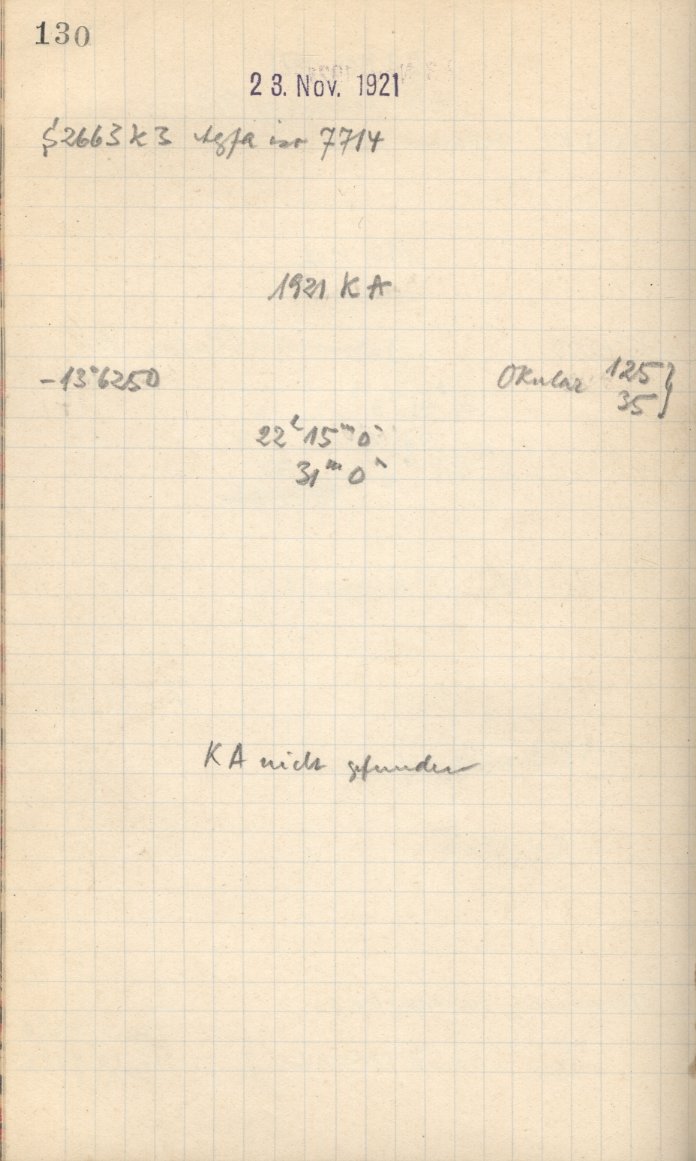 130
23. Nov. 1921
2663 k3 Agfa iso 7714
1921 KA
-13°6250 Okular 125 }
35
22h 15m 0s
31m 0s
KA nicht gefunden